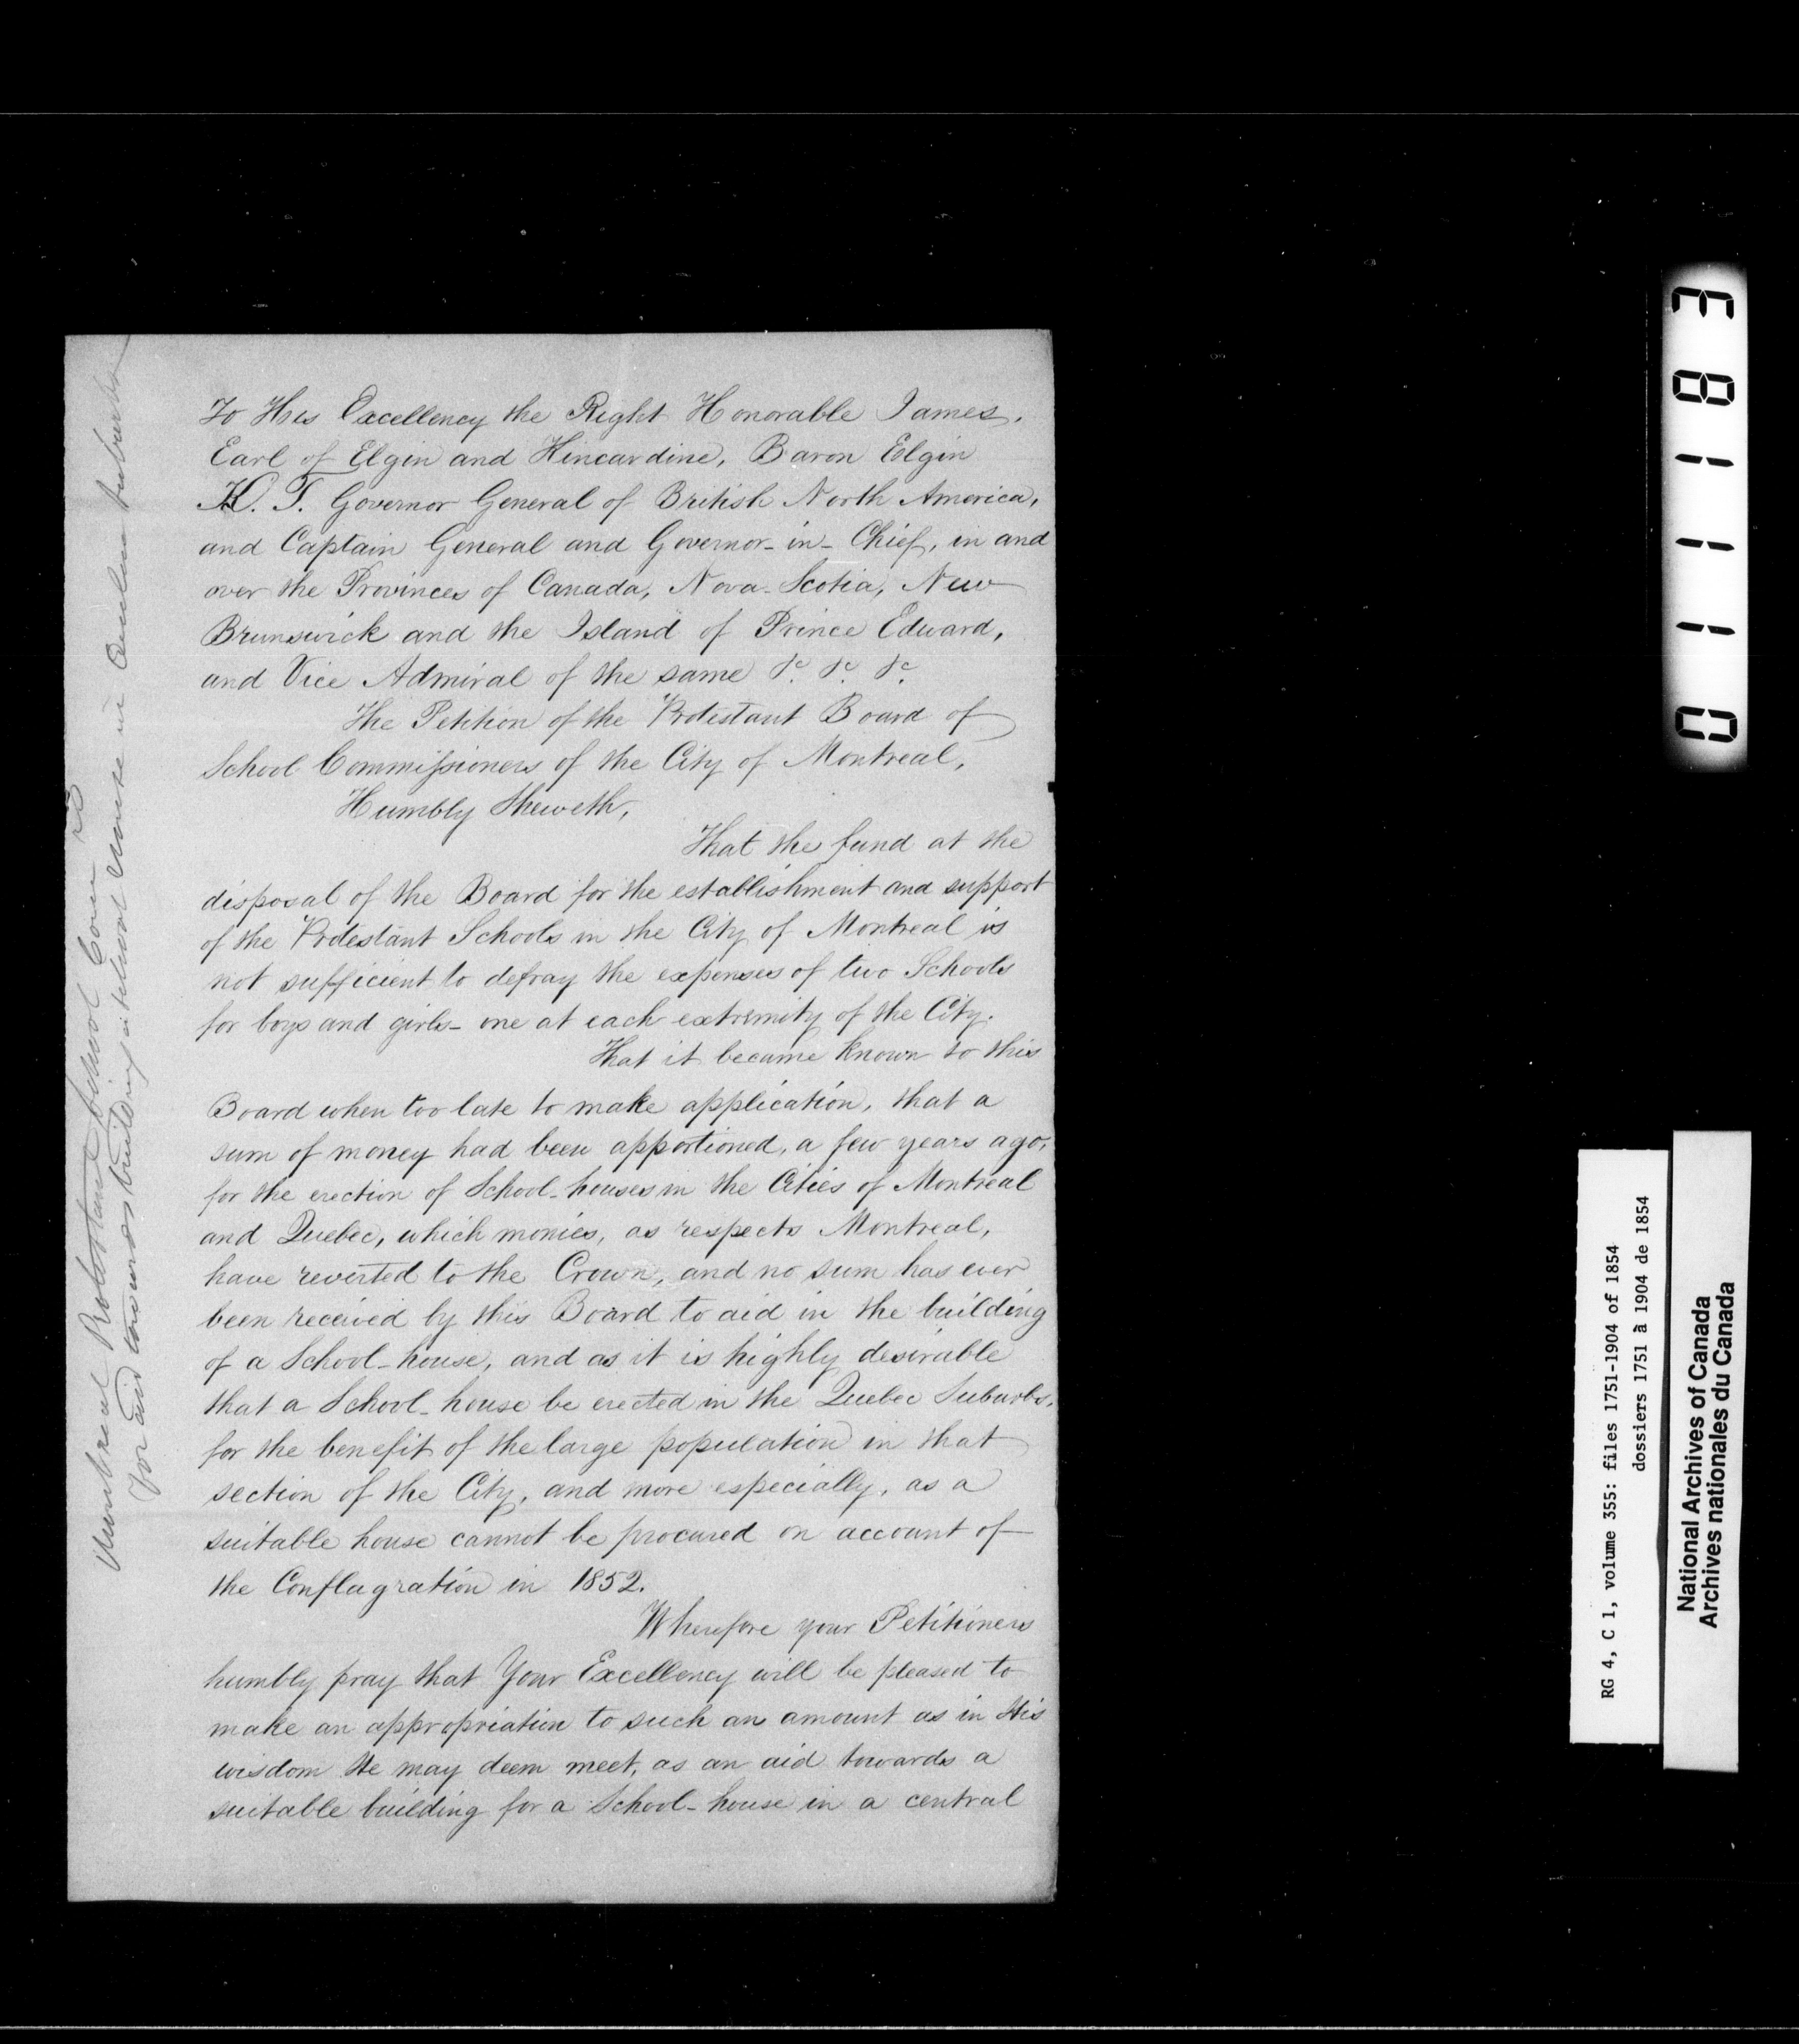 To His Excellency the Right Honorable James,
Earl of Elgin and Kincardine, Baron Elgin
K. T. Governor General of British North America,
and Captain General and Governor-in-Chief, in and
over the Provinces of Canada, Nova-Scotia, New
Brunswick and the Island of Prince Edward,
and Vice Admiral of the same &c. &c. &c.
The Petition of the Protestant Board of
School Commissioners of the City of Montreal,
Humbly Sheweth,
That the fund at the
disposal of the Board for the establishment and support
of the Protestant Schools in the City of Montreal is
not sufficient to defray the expenses of two Schools
for boys and girls - one at each extremity of the City.
That it became known to this
Board when too late to make application, that a
sum of money had been apportioned, a few years ago,
for the erection of School-houses in the Cities of Montreal
and Quebec, which monies, as respects Montreal,
have reverted to the Crown, and no sum has ever
been received by this Board to aid in the building
of a School-house, and as it is highly desirable
that a School-house be erected in the Quebec Suburbs,
for the benefit of the large population in that
section of the City, and more especially, as a
suitable house cannot be procured on account of
the Conflagration in 1852.
Wherefore your Petitioners
humbly pray that Your Excellency will be pleased to
make an appropriation to such an amount as in His
wisdom He may deem meet, as an aid towards a
suitable building for a School-house in a central
Montreal Protestant School Com rs
For aid towards building a school house in Quebec suburbs
C 1 1 1 8 3
RG 4, C 1, volume 355: files 1751-1904 of 1854
dossiers 1751 à 1904 de 1854
National Archives of Canada
Archives nationales du Canada